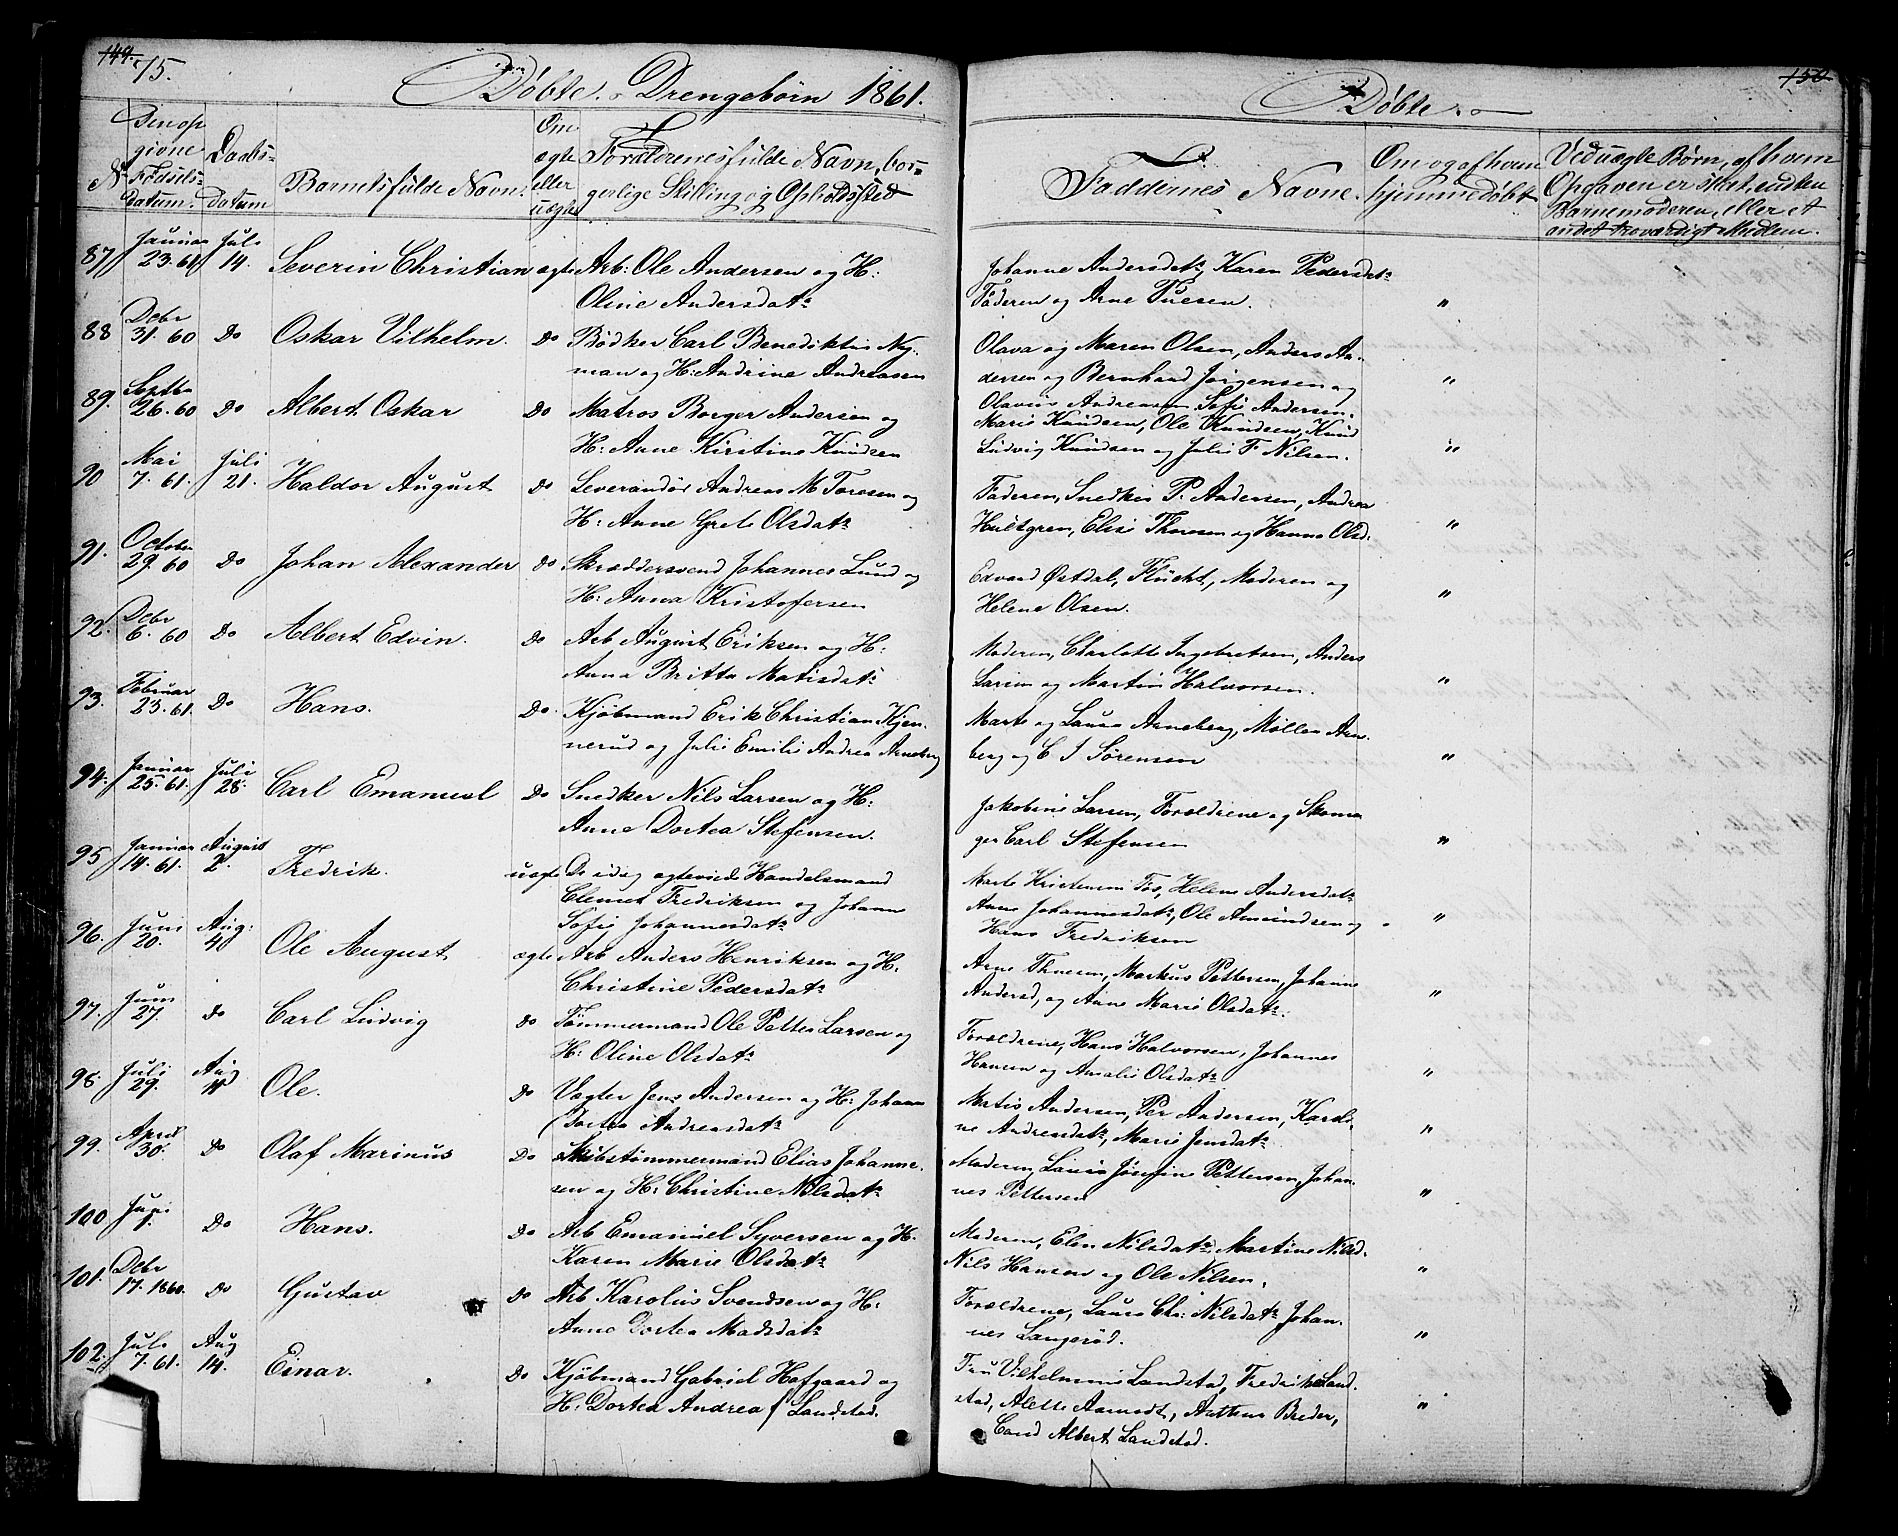 149. 75.
Døbte. Drengebørn 1861.
Den op
givne
Fødsels-
Datum.
N
Daabs-
Datum
Barnets fulde Navn.
Om
ægte
eller
uægte
Forældrenes fulde Navn, bor-
gerlige Stilling og Opholdssted
87. Januar 23. 61. Juli 14. Severin Christian ægte Arb: Ole Andersen og H:
Oline Andersdatr
88 Debr 31. 60 Do Oskar Vilhelm. Do Bødker Carl Benediktus Ny-
man og H: Andrine Andreasen
89. Septbr 26. 60 Do Albert Oskar Do Matros Borger Andersen og
H: Anne Kirstine Knudsen
90 Mai 7. 61. Juli 21. Haldor August Do Leverandør Andreas M Toresen og
H: Anne Grete Olsdatr
91. October 29. 60 Do Johan Alexander Do Skræddersvend Johannes Lund og
H: Anna Kristofersen
92. Debr 6. 60 Do Albert Edvin. Do Arb August Eriksen og H:
Anna Britta Matisdatr
93. Februar 23. 61. Do Hans. Do. Kjøbmand Erik Christian Kjen-
nerud og Julie Emilie Andrea Arneberg
94. Januar 25. 61. Juli 28. Carl Emanuel Do Snedker Nils Larsen og H:
Anne Dortea Stefensen.
95 Januar 14. 61. August 2. Fredrik. uægte De idag ægteviede Handelsmand
Clemet Fredriksen og Johann
Sofie Johannesdatr
96. Juni 20. Aug: 4 Ole August ægte Arb Anders Henriksen og H:
Christine Pedersdatr
97. Juni 27. do Carl Ludvig do Tømmermand Ole Petter Larsen og
H: Oline Olsdatr
98. Juli 29. Aug 11 Ole. Do Vægter Jens Andersen og H: Johann
Dortea Andreasdatr
99. April 30. Do Olaf Marinus Do Skibstømmermand Elias Johanne-
sen og H: Christine Nilsdatr
100 Juni 1. Do Hans. Do Arb Emanuel Syversen og H.
Karen Marie Olsdatr
101. Debr 17. 1860. Do Gustav Do Arb Karolus Svendsen og H:
Anne Dortea Madsdatr
102. Juli 7. 61. Aug 14. Einar. Do Kjøbmand Gabriel Hofgaard og
H: Dortea Andrea f Landstad.
150
Døbte.
Faddernes Navne.
Om og af hvem
hjemmedøbt
Ved uægte Børn, af hvem
Opgaven er sket, enten
Barnemoderen, eller et
andet troværdigt Medlem.
Johanne Andersdatr Karen Pedersdatr
Faderen og Arne Tuesen. "
Olava og Maren Olsen, Anders An-
dersen og Bernhard Jørgensen og "
Olavus Andreasen Sofi Andersen.
Marie Knudsen, Ole Knudsen, Knud
Ludvig Knudsen og Julie F. Nilsen. "
Faderen, Snedker P. Andersen, Andrea
Hultgren, Elise Thoresen og Hanna Olsd: "
Edvard Østdal, Flucht, Moderen og
Helene Olsen. "
Moderen, Charlotte Ingebretsen, Anders
Larsen og Martin Halvorsen. "
Marte og Laura Arneberg, Møller Arn-
berg og C I Sørensen "
Jakobine Larsen, Forældrene og Skoma
ger Carl Stefensen "
Marte Kristensen Fos, Helene Andersdatr
Anne Johannesdatr, Ole Amundsen og "
Hans Fredriksen
Arne Thuesen, Markus Pettersen, Johanne
Andersd, og Anne Marie Olsdatr. "
Forældrene, Hans Halvorsen, Johannes
Hansen og Amalie Olsdatr "
Matis Andersen, Per Andersen, Karoli-
ne Andreasdatr, Marie Jensdatr "
Moderen, Lovis Josefine Pettersen, Johan-
nes Pettersen "
Moderen, Elen Nilsdatr Martine Nilsd.
Nils Hansen og Ole Nilsen. "
Forældrene, Laura Chr: Nilsdatr Johan-
nes Langerød. "
Fru Vilhelmine Landstad, Fredrik Land-
stad, Alette Aamodt, Breder, "
Cand Albert Landstad.